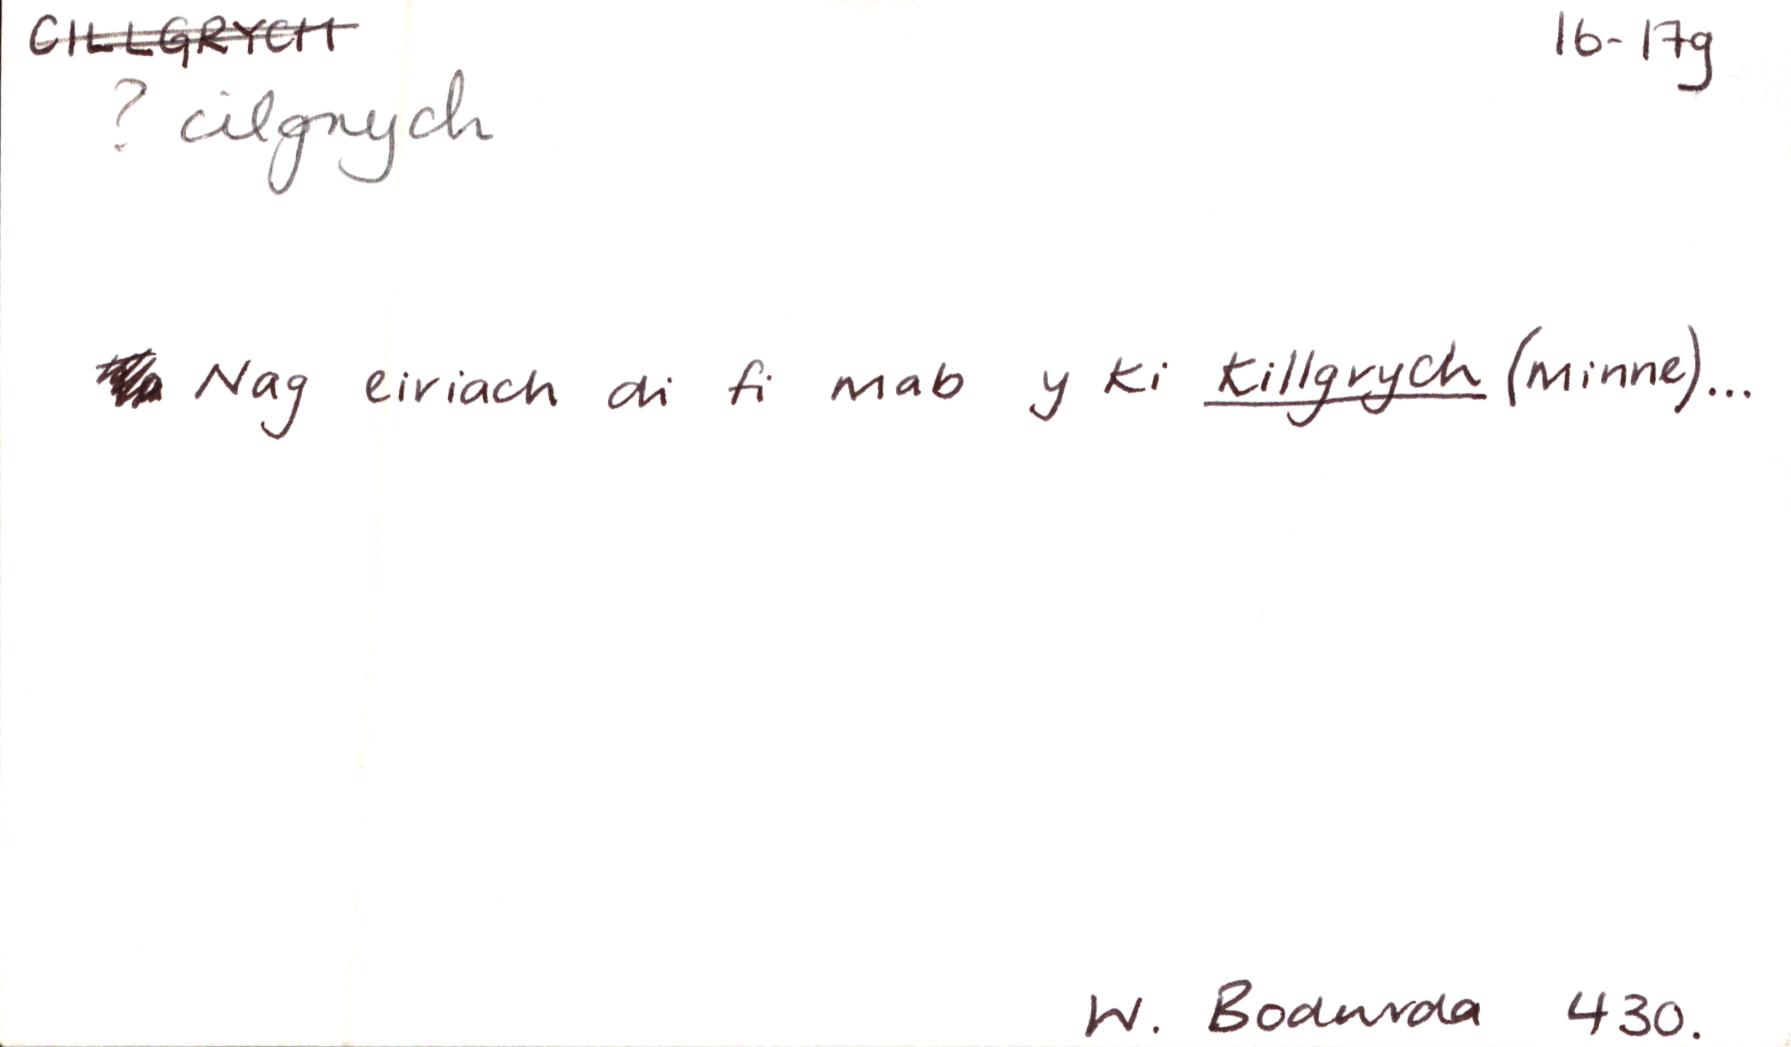 CILLGRYCH 16-17g
? cilgnych
Nag eiriach di fi mab y ki killgrych (minne)...
W. Bodwrda 430.